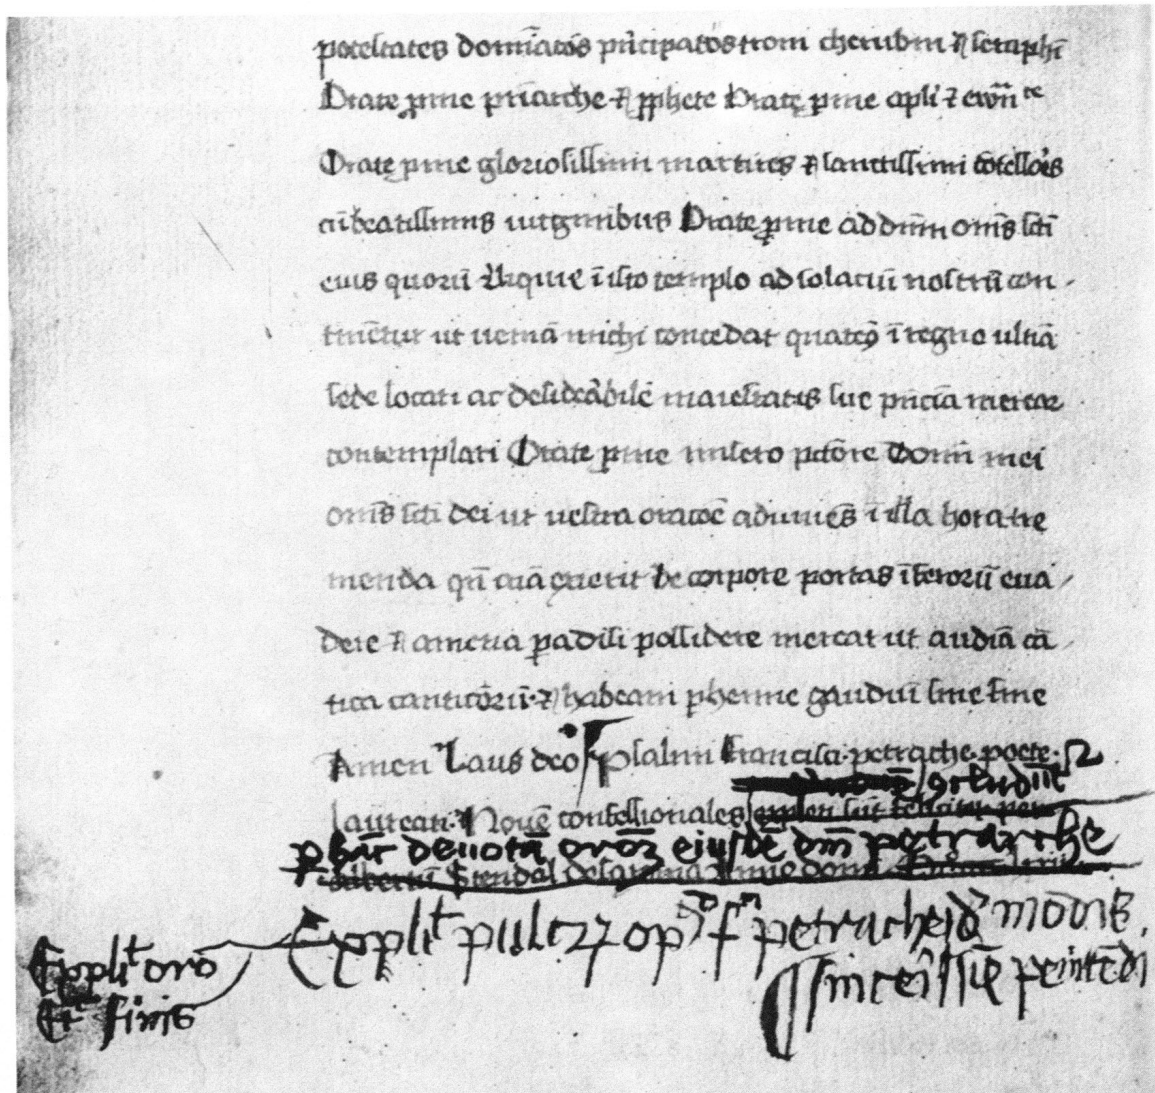 potestates domīatōs prīcipatōs troni cherubin ⁊ seraphī
Orate pme priarche ⁊ pphete Orate pme apli ⁊ ewn̄
Orate pme gloriosissimi martires ⁊ sanctissimi cōfessores
cū beatissimis uirginibus Orate pme ad dūm om̄s sc̄ti
eius quorū reliquie ī isto templo ad solaciū nostrū con
tinētur ut ueniā michi concedat quatēꝰ ī regno ultiā
sede locari ac desideābilē maiestatis sue p̄nciā merear
contemplari Orate pme misero pctōre Domī mei
om̄s sc̄ti dei ut uestra oratōe ī illa hora tre
menda qn̄ aīa exierit de corpore portas īferorū eua
dere ⁊ amena padisi possidere merear ut audiā cā
tica canticōrū ⁊ habeam phenne gaudiū sine fine
Amen Laus deo Psalmi francisci petrache poete
laureati Nouē confessionales expleti sūt feliciter per
deuotā orōȝ eiusdē dn̄i petrarche
albertū Stendal de saxonia Anno domī
Explīt op f petrache modis
Explīt orō
Et sic finis